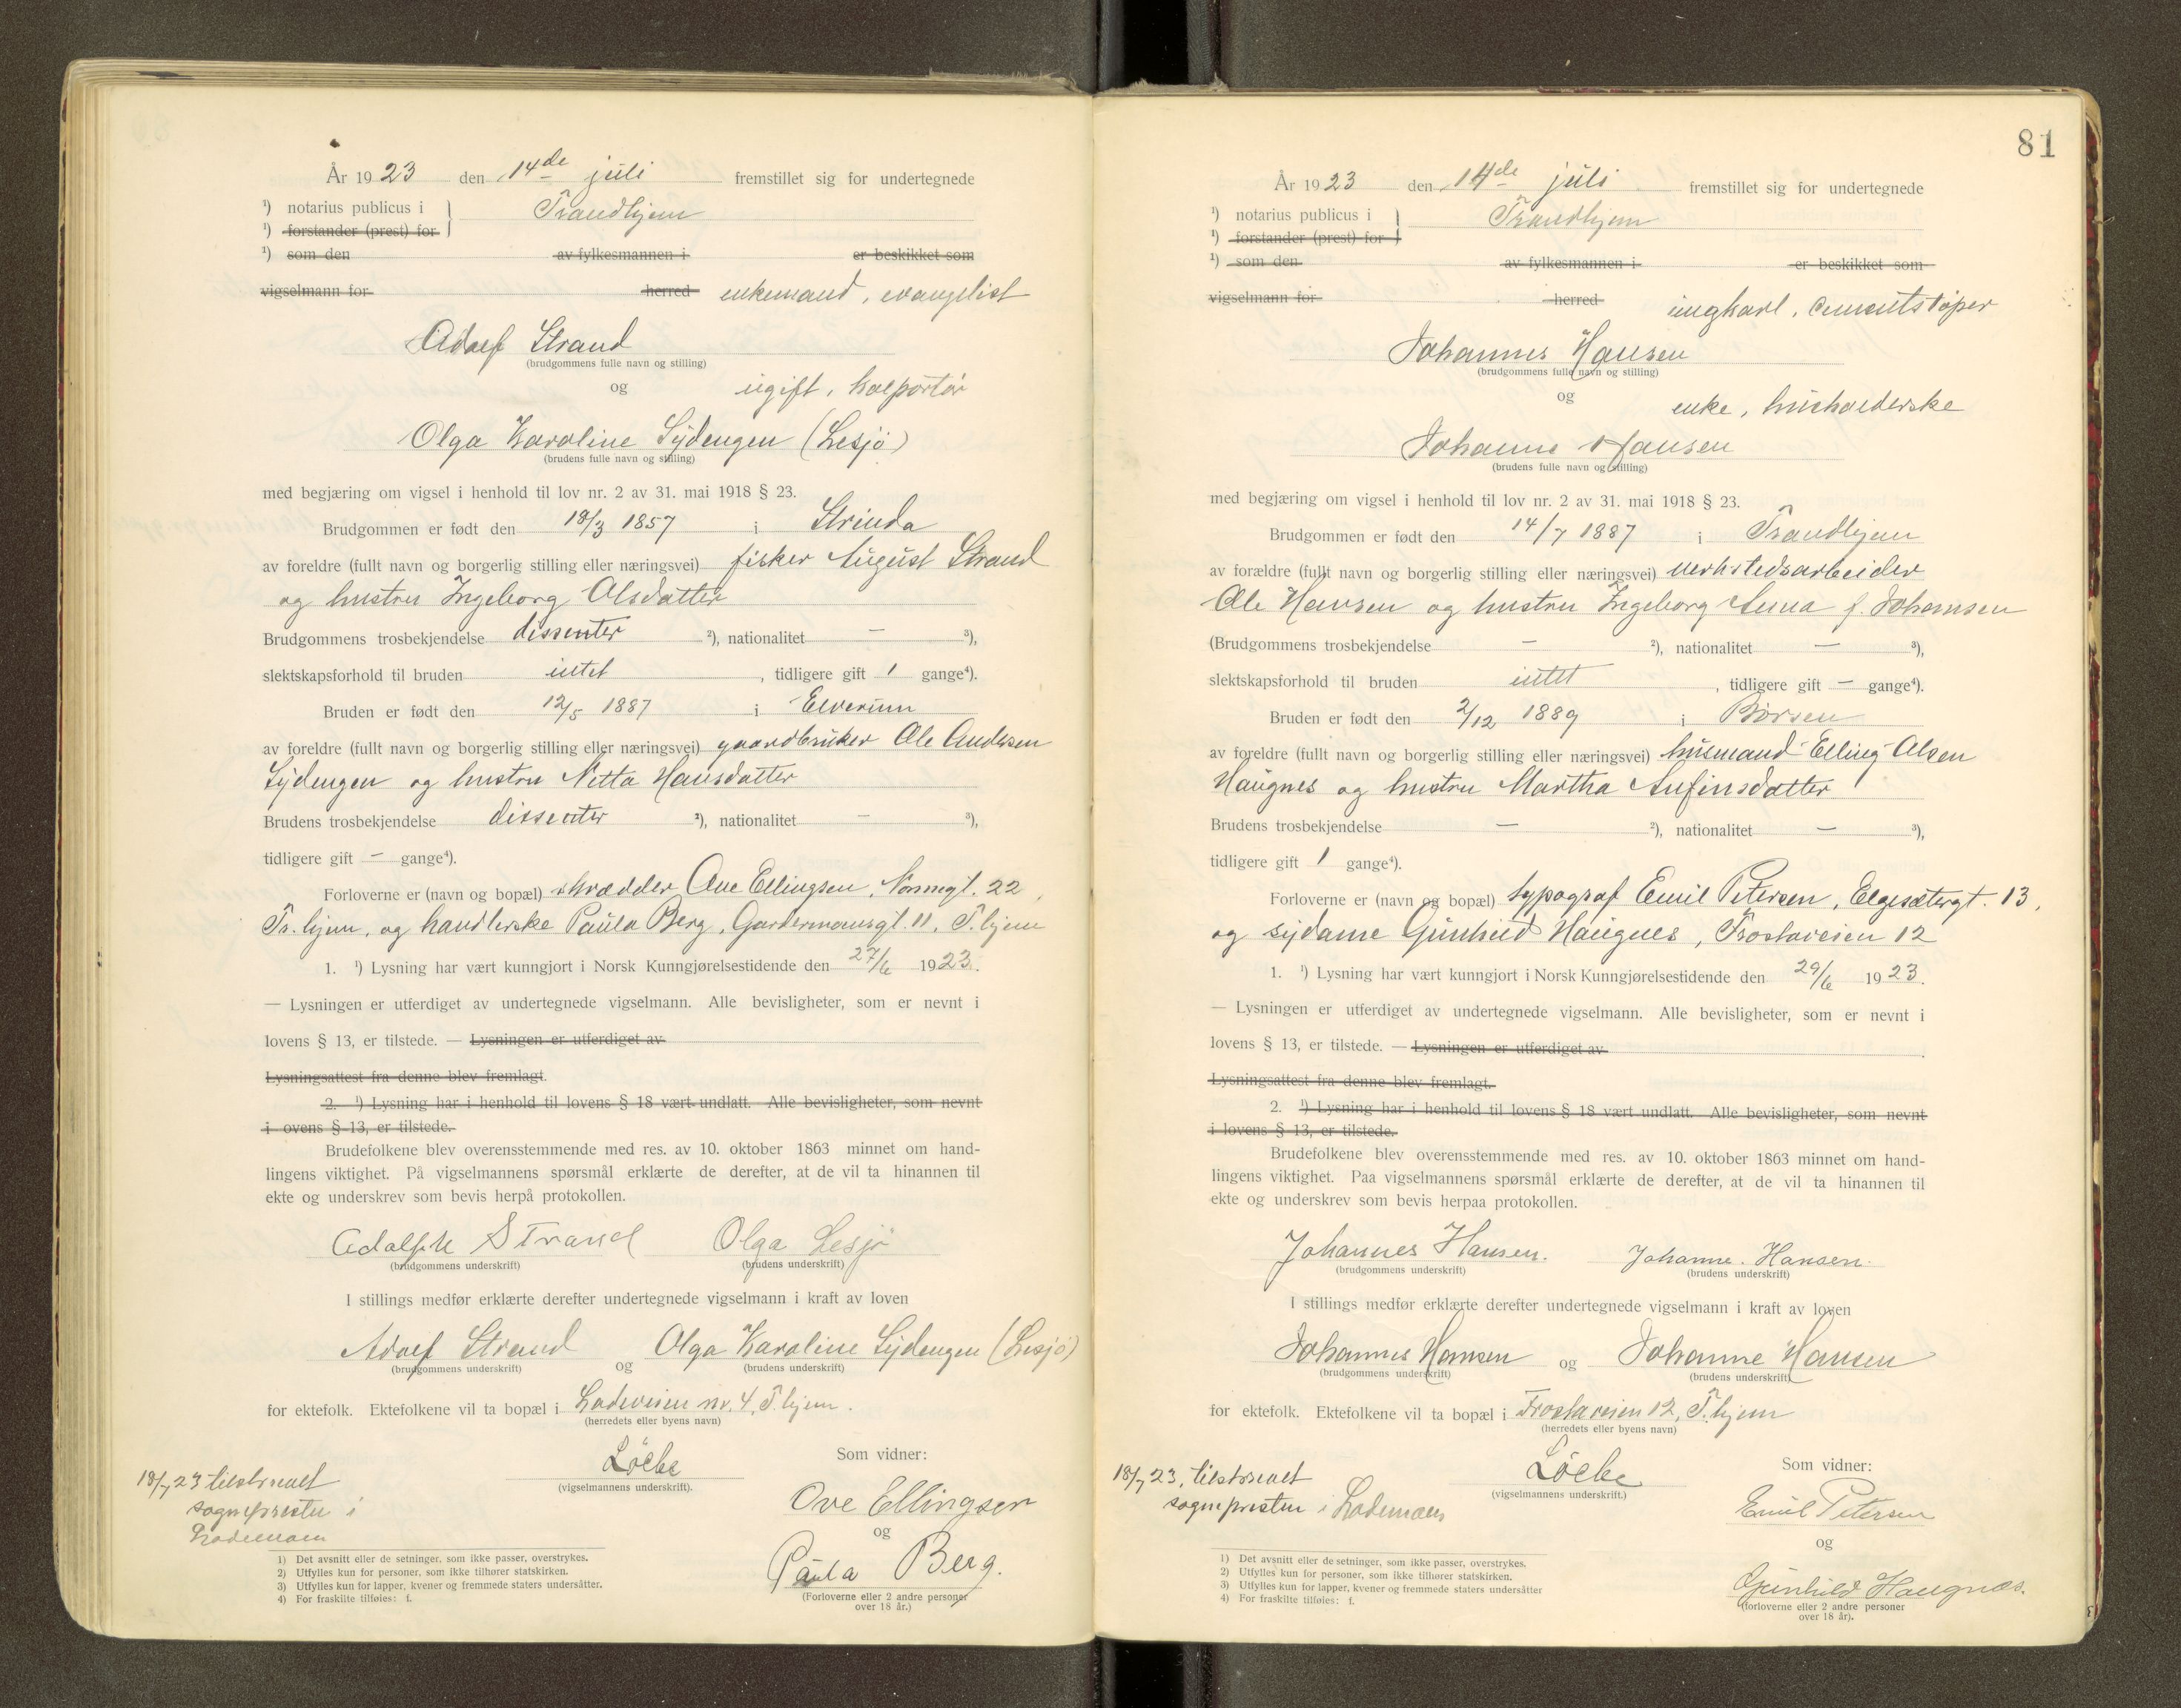 År 1923 den 14de juli fremstillet sig for undertegnede
¹) notarius publicus i } Trondhjem
¹) forstander (prest) for
¹) som den av fylkesmannen i er beskikket som
vigselmann for herred enkemand, evangelist
Adolf Strand
(brudgommens fulle navn og stilling)
og ugift, kolportør
Olga Karoline Sydengen (Lesjø)
(brudens fulle navn og stilling)
med begjæring om vigsel i henhold til lov nr. 2 av 31. mai 1918 § 23.
Brudgommen er født den 18/3 1857 i Strinda
av foreldre (fullt navn og borgerlig stilling eller næringsvei) fisker August Strand
og hustru Ingeborg Olsdatter
Brudgommens trosbekjendelse dissenter ²), nationalitet — ³),
slektskapsforhold til bruden intet, tidligere gift 1 gange⁴).
Bruden er født den 12/5 1887 i Elverum
av foreldre (fullt navn og borgerlig stilling eller næringsvei) gaardbruker Ole Andersen
Sydengen og hustru Netta Hansdatter
Brudens trosbekjendelse dissenter ²), nationalitet — ³),
tidligere gift — gange⁴).
Forloverne er (navn og bopæl) skrædder Ove Ellingsen, Nonnegt. 22,
Tr.hjem, og handlerske Paula Berg, Gardermoensgt. 11, T.hjem
1. ¹) Lysning har vært kunngjort i Norsk Kunngjørelsestidende den 27/6 1923.
— Lysningen er utferdiget av undertegnede vigselmann. Alle bevisligheter, som er nevnt i
lovens § 13, er tilstede. — Lysningen er utferdiget av
Lysningsattest fra denne blev fremlagt.
2. ¹) Lysning har i henhold til lovens § 18 vært undlatt. Alle bevisligheter, som nevnt
i ovens § 13, er tilstede.
Brudefolkene blev overensstemmende med res. av 10. oktober 1863 minnet om hand-
lingens viktighet. På vigselmannens spørsmål erklærte de derefter, at de vil ta hinannen til
ekte og underskrev som bevis herpå protokollen.
Adolph Strand Olga Lesjø
(brudgommens underskrift) (brudens underskrift)
I stillings medfør erklærte derefter undertegnede vigselmann i kraft av loven
Adolf Strand og Olga Karoline Sydengen (Lesjø)
(brudgommens underskrift) (brudens underskrift)
for ektefolk. Ektefolkene vil ta bopæl i Ladeveien nr. 4, T.hjem.
(herredets eller byens navn)
Som vidner:
Löche
(vigselmannens underskrift).
18/7 23 tilskrevet
sognepresten i
Lademoen
Ove Ellingsen
og
Paula Berg.
(Forloverne eller 2 andre personer
over 18 år.)
1) Det avsnitt eller de setninger, som ikke passer, overstrykes.
2) Utfylles kun for personer, som ikke tilhører statskirken.
3) Utfylles kun for lapper, kvener og fremmede staters undersåtter.
4) For fraskilte tilføies: f.
81
År 1923 den 14de juli fremstillet sig for undertegnede
¹) notarius publicus i } Trondhjem
¹) forstander (prest) for
¹) som den av fylkesmannen i er beskikket som
vigselmann for herred ungkarl, cementstøper
Johannes Hansen
(brudgommens fulle navn og stilling)
og enke, husholderske
Johanne Hansen
(brudens fulle navn og stilling)
med begjæring om vigsel i henhold til lov nr. 2 av 31. mai 1918 § 23.
Brudgommen er født den 14/7 1887 i Trondhjem
av forældre (fullt navn og borgerlig stilling eller næringsvei) verkstedsarbeider
Ole Hansen og hustru Ingeborg Anna f. Johansen
(Brudgommens trosbekjendelse — ²), nationalitet — ³),
slektskapsforhold til bruden intet, tidligere gift — gange⁴).
Bruden er født den 2/12 1889 i Børsen
av foreldre (fullt navn og borgerlig stilling eller næringsvei) husmand Elling Olsen
Haugnes og hustru Martha Anfinsdatter
Brudens trosbekjendelse — ²), nationalitet — ³),
tidligere gift 1 gange⁴).
Forloverne er (navn og bopæl) typograf Emil Petersen, Elgesætergt. 13,
og sydame Gunhild Haugnes, Frostaveien 12
1. ¹) Lysning har vært kunngjort i Norsk Kunngjørelsestidende den 29/6 1923.
— Lysningen er utferdiget av undertegnede vigselmann. Alle bevisligheter, som er nevnt i
lovens § 13, er tilstede. — Lysningen er utferdiget av
Lysningsattest fra denne blev fremlagt.
2. ¹) Lysning har i henhold til lovens § 18 vært undlatt. Alle bevisligheter, som nevnt
i lovens § 13, er tilstede.
Brudefolkene blev overensstemmende med res. av 10. oktober 1863 minnet om hand-
lingens viktighet. Paa vigselmannens spørsmål erklærte de derefter, at de vil ta hinannen til
ekte og underskrev som bevis herpaa protokollen.
Johannes Hansen. Johanne. Hansen.
(brudgommens underskrift) (brudens underskrift)
I stillings medfør erklærte derefter undertegnede vigselmann i kraft av loven
Johannes Hansen og Johanne Hansen
(brudgommens underskrift) (brudens underskrift)
for ektefolk. Ektefolkene vil ta bopæl i Frostaveien 12, T.hjem
(herredets eller byens navn)
Som vidner:
Löche
(vigselmannens underskrift.)
18/7 23, tilskrevet
sognepresten i Lademoen
Emil Petersen
og
Gunhild Haugnæs.
(forloverne eller 2 andre personer
over 18 år).
1) Det avsnitt eller de setninger, som ikke passer, overstrykes.
2) Utfylles kun for personer, som ikke tilhører statskirken.
3) Utfylles kun for lapper, kvener og fremmede staters undersåtter
4) For fraskilte tilføies: f.